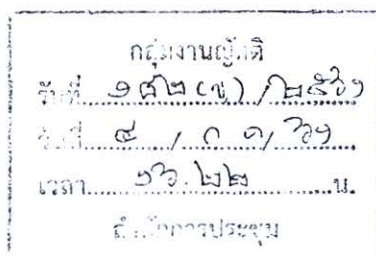 กลุ่มงานญัตติ
รับที่ ๑๔๒(ข) /๒๕๖๑
วันที่ ๔ / ก.ค/ ๖๑
เวลา ๑๖.๒๒ น.
สำนักการประชุม